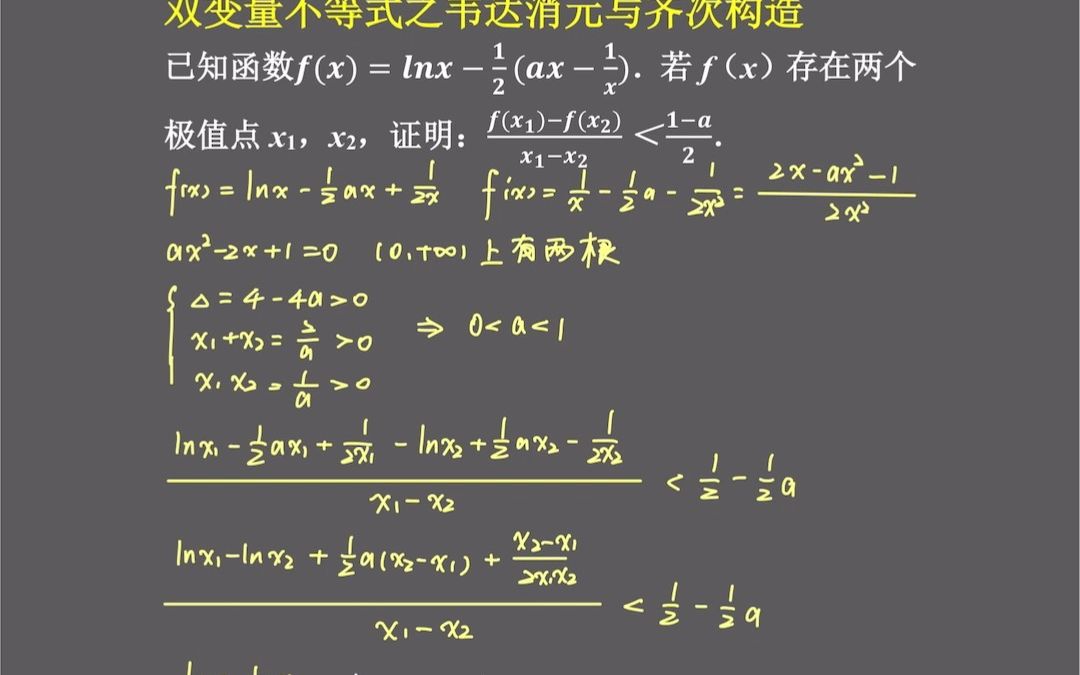 双变量不等式之韦达消元与齐次构造
已知函数f(x) = lnx − 1/2 (ax − 1/x). 若 f (x) 存在两个
极值点 x₁, x₂, 证明: (f(x₁)−f(x₂))/(x₁−x₂) < (1−a)/2.
f(x) = lnx − 1/2 ax + 1/2x    f'(x) = 1/x − 1/2 a − 1/2x² = (2x − ax² − 1)/2x²
ax² − 2x + 1 = 0 (0, +∞) 上有两根
{ Δ = 4 − 4a > 0
x₁ + x₂ = 2/a > 0 ⇒ 0 < a < 1
x₁ x₂ = 1/a > 0
(lnx₁ − 1/2 ax₁ + 1/2x₁ − lnx₂ + 1/2 ax₂ − 1/2x₂)/(x₁ − x₂) < 1/2 − 1/2 a
(lnx₁ − lnx₂ + 1/2 a(x₂ − x₁) + (x₂ − x₁)/2x₁x₂)/(x₁ − x₂) < 1/2 − 1/2 a